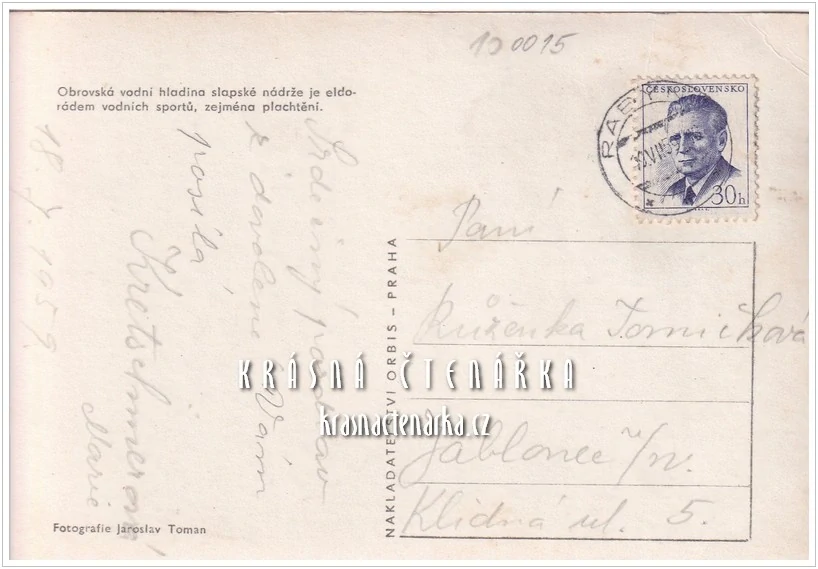 130015
Obrovská vodní hladina slapské nádrže je eldo-
rádem vodních sportů, zejména plachtění.
ČESKOSLOVENSKO
30h
Srdečný pozdrav
z dovolené Vám
posílá
Kretschmerová
Marie
18. 7. 1959
NAKLADATELSTVÍ ORBIS – PRAHA
Paní
Růženka Tomíčková
Jablonec n/N.
Klidná ul. 5.
KRÁSNÁ ČTENÁŘKA
krasnactenarka.cz
Fotografie Jaroslav Toman